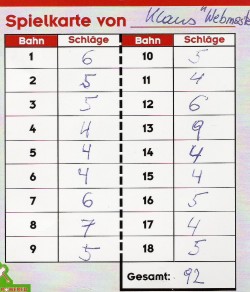 Spielkarte von Klaus "Webmast
Bahn Schläge Bahn Schläge
1 6 10 5
2 5 11 4
3 5 12 6
4 4 13 9
5 4 14 4
6 4 15 4
7 6 16 5
8 7 17 4
9 5 18 5
Gesamt: 92